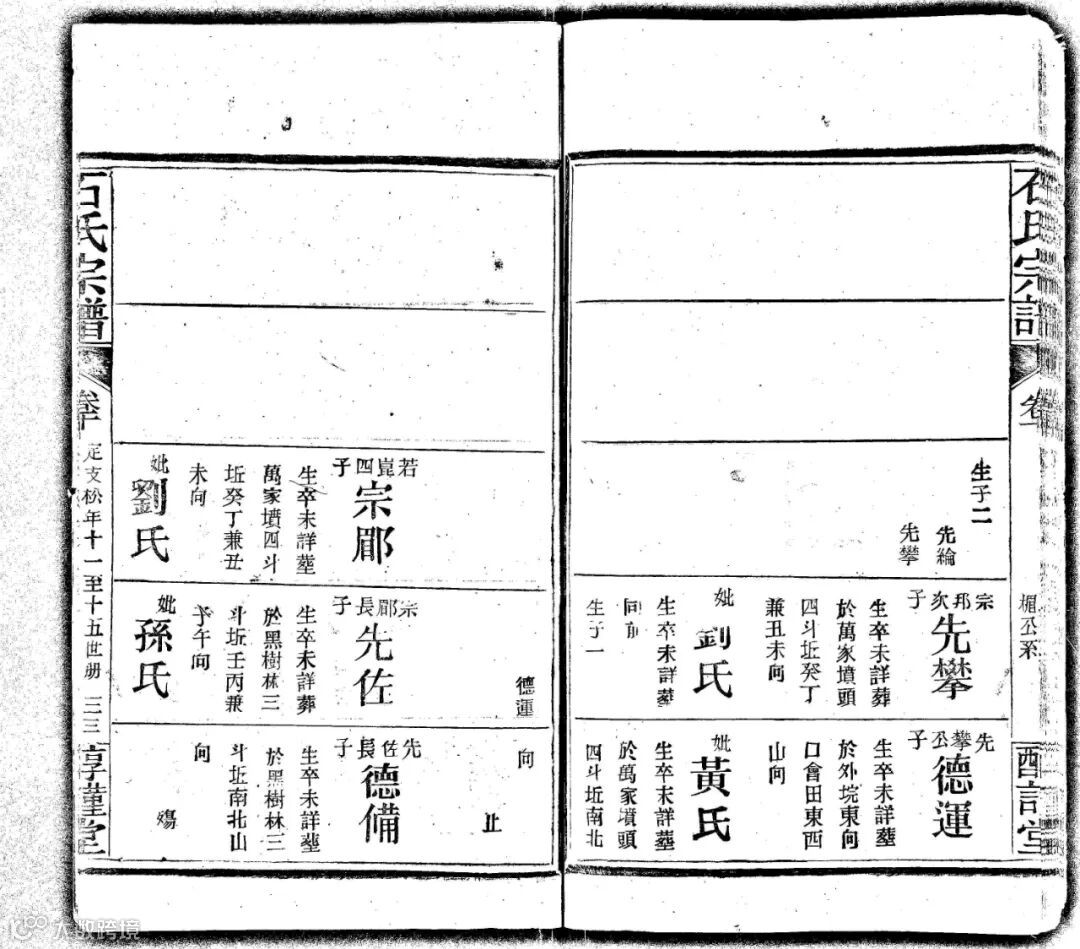 石氏宗譜
卷
楒公系
生子二
先綸
先攀
宗邦次子
先攀
生卒未詳葬
於萬家墳頭
四斗坵癸丁
兼丑未向
妣
劉氏
生卒未詳葬
同前
生子一
先攀公子
德運
生卒未詳葬
於外垸東向
口會田東西
山向
妣
黃氏
生卒未詳葬
於萬家墳頭
四斗坵南北
德運
向
止
若崑四子
宗郿
生卒未詳葬
萬家墳四斗
坵癸丁兼丑
未向
妣
劉氏
宗郿長子
先佐
生卒未詳葬
於黑樹林三
斗坵壬丙兼
子午向
妣
孫氏
先佐長子
德備
生卒未詳葬
於黑樹林三
斗坵南北山
向
殤
石氏宗譜
卷十
定支松年十一至十五世册
三三
惇謹堂
大数跨境